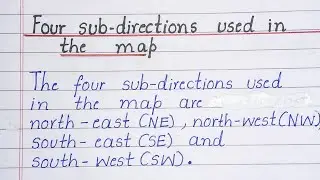 Four sub-directions used in
the map
The four sub-directions used
in the map are
north-east (NE), north-west (NW)
south-east (SE) and
south-west (SW).